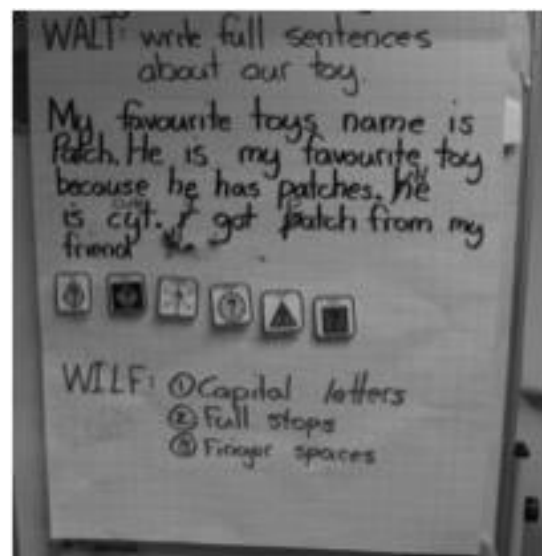 WALT: write full sentences
about our toy.
My favourite toys name is
Patch. He is my favourite toy
because he has patches. he
is cut. I got patch from my
friend
WILF: ① Capital letters
② Full stops
③ Finger spaces